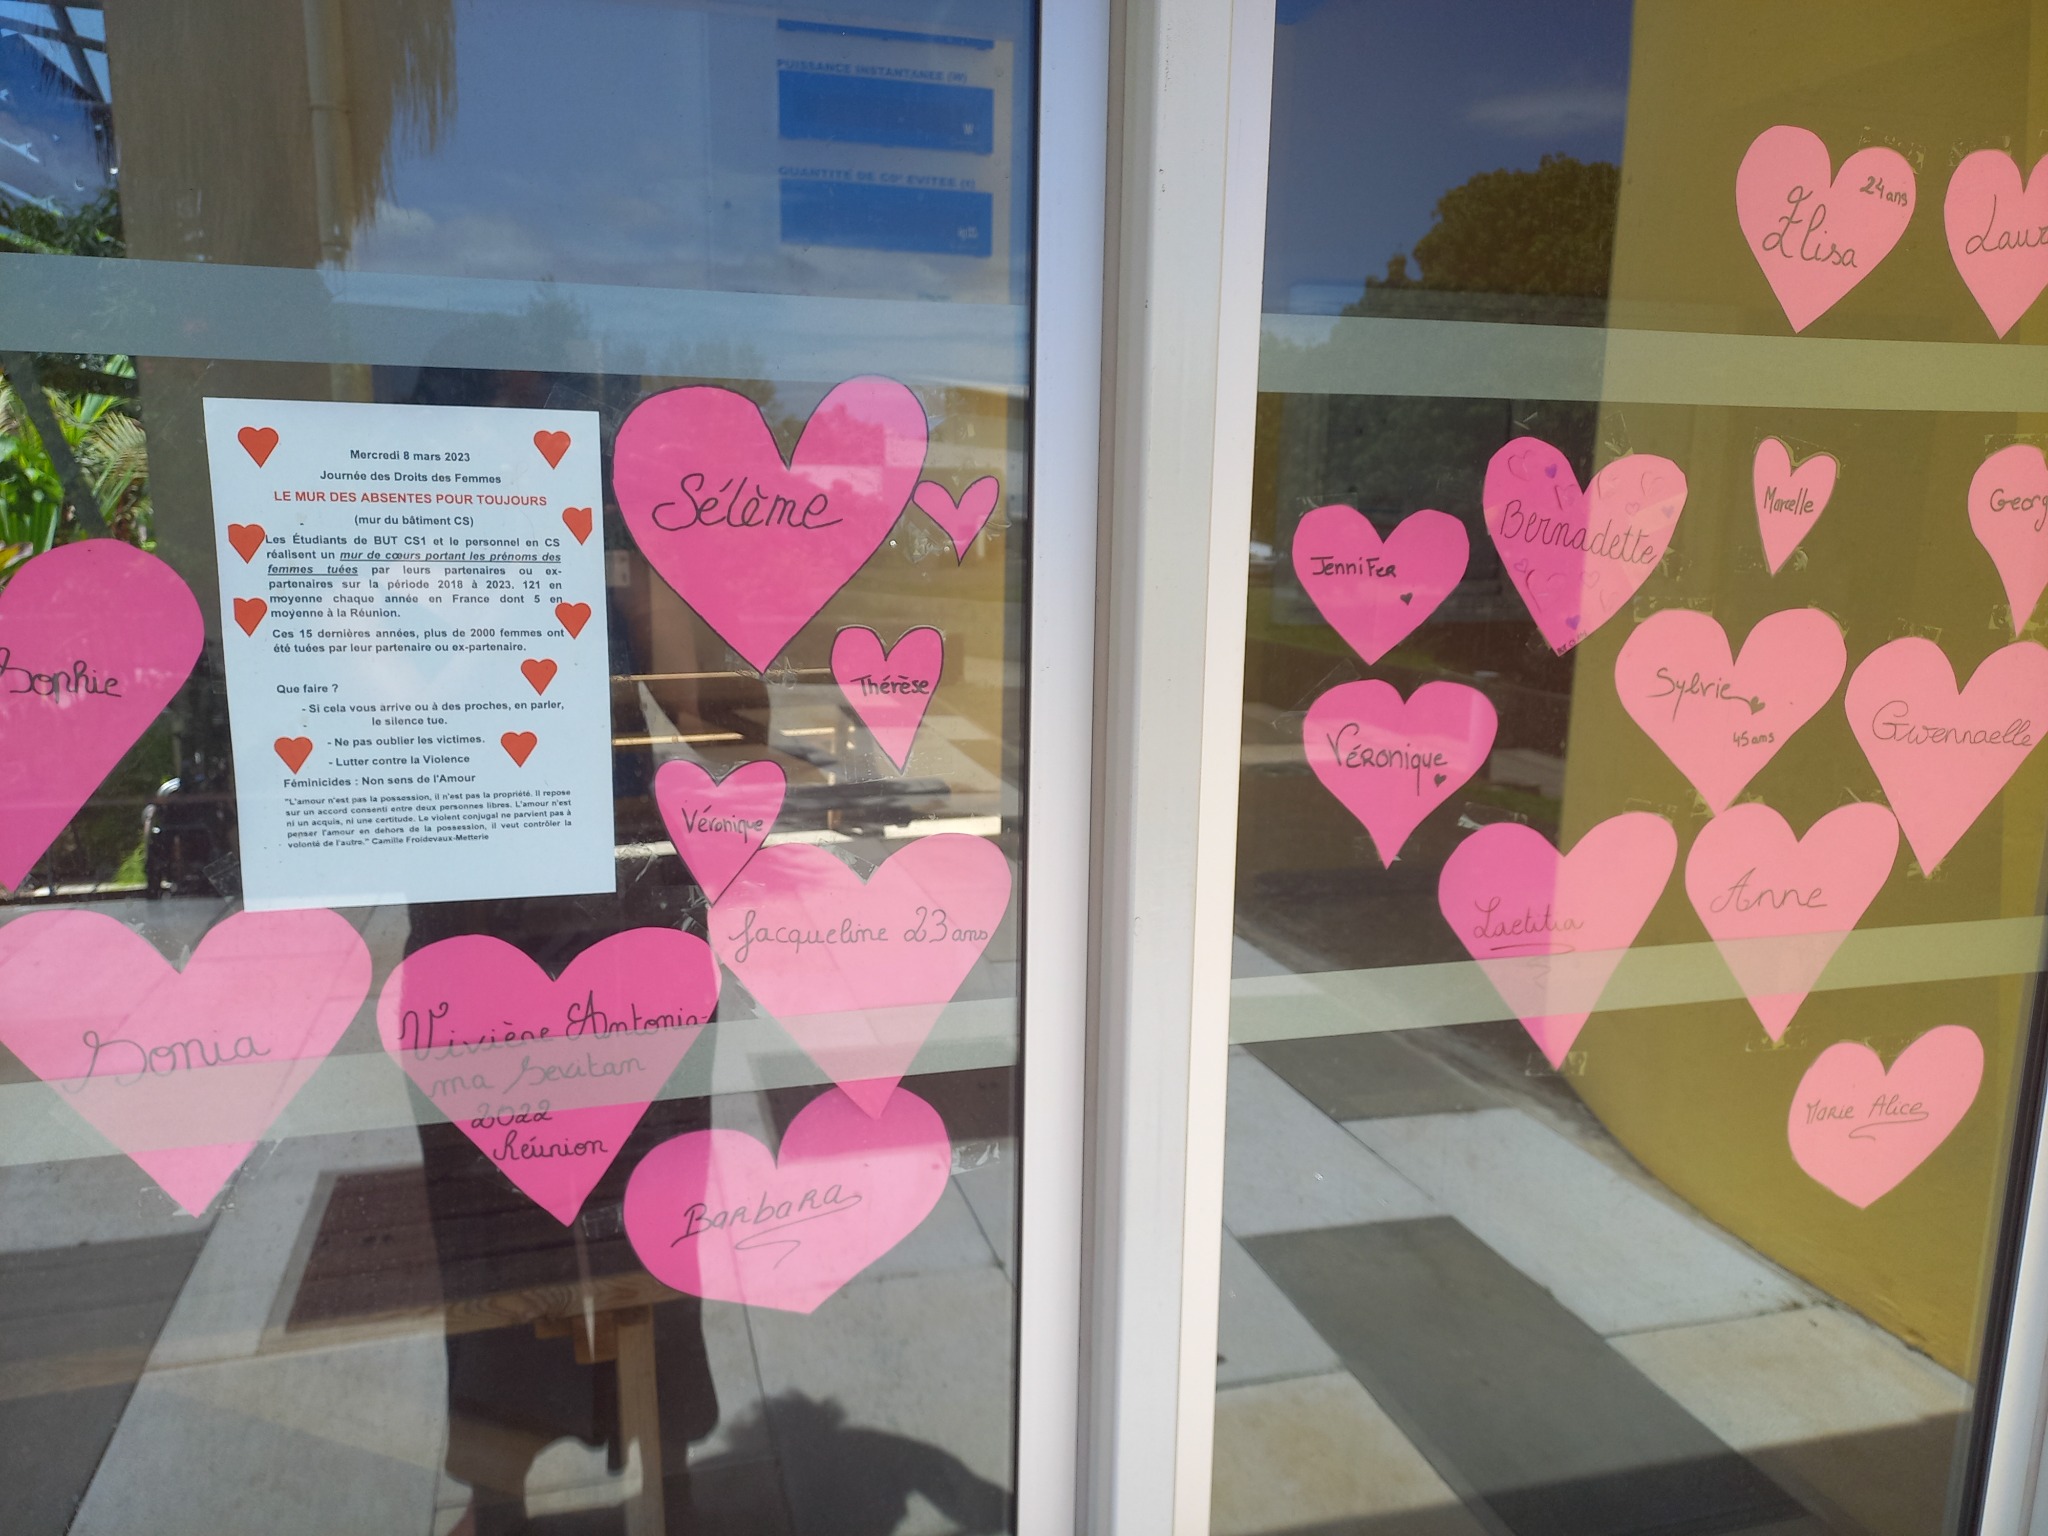 PUISSANCE INSTANTANEE (W)
QUANTITÉ DE CO² EVITEE (t)
Mercredi 8 mars 2023
Journée des Droits des Femmes
LE MUR DES ABSENTES POUR TOUJOURS
(mur du bâtiment CS)
Les Étudiants de BUT CS1 et le personnel en CS
réalisent un mur de cœurs portant les prénoms des
femmes tuées par leurs partenaires ou ex-
partenaires sur la période 2018 à 2023. 121 en
moyenne chaque année en France dont 5 en
moyenne à la Réunion.
Ces 15 dernières années, plus de 2000 femmes ont
été tuées par leur partenaire ou ex-partenaire.
Que faire ?
- Si cela vous arrive ou à des proches, en parler,
le silence tue.
- Ne pas oublier les victimes.
- Lutter contre la Violence
Féminicides : Non sens de l'Amour
"L'amour n'est pas la possession, il n'est pas la propriété. Il repose
sur un accord consenti entre deux personnes libres. L'amour n'est
ni un acquis, ni une certitude. Le violent conjugal ne parvient pas à
penser l'amour en dehors de la possession, il veut contrôler la
volonté de l'autre." Camille Froidevaux-Metterie
Sophie
Sélème
Thérèse
Véronique
Jacqueline 23 ans
Sonia
Vivière Antonia-
ma Sevitan
2022
Réunion
Barbara
Elisa
24 ans
Laur
Jennifer
Bernadette
Marcelle
Georg
Véronique
Sylvie
45 ans
Gwennaelle
Laetitia
Anne
Marie Alice